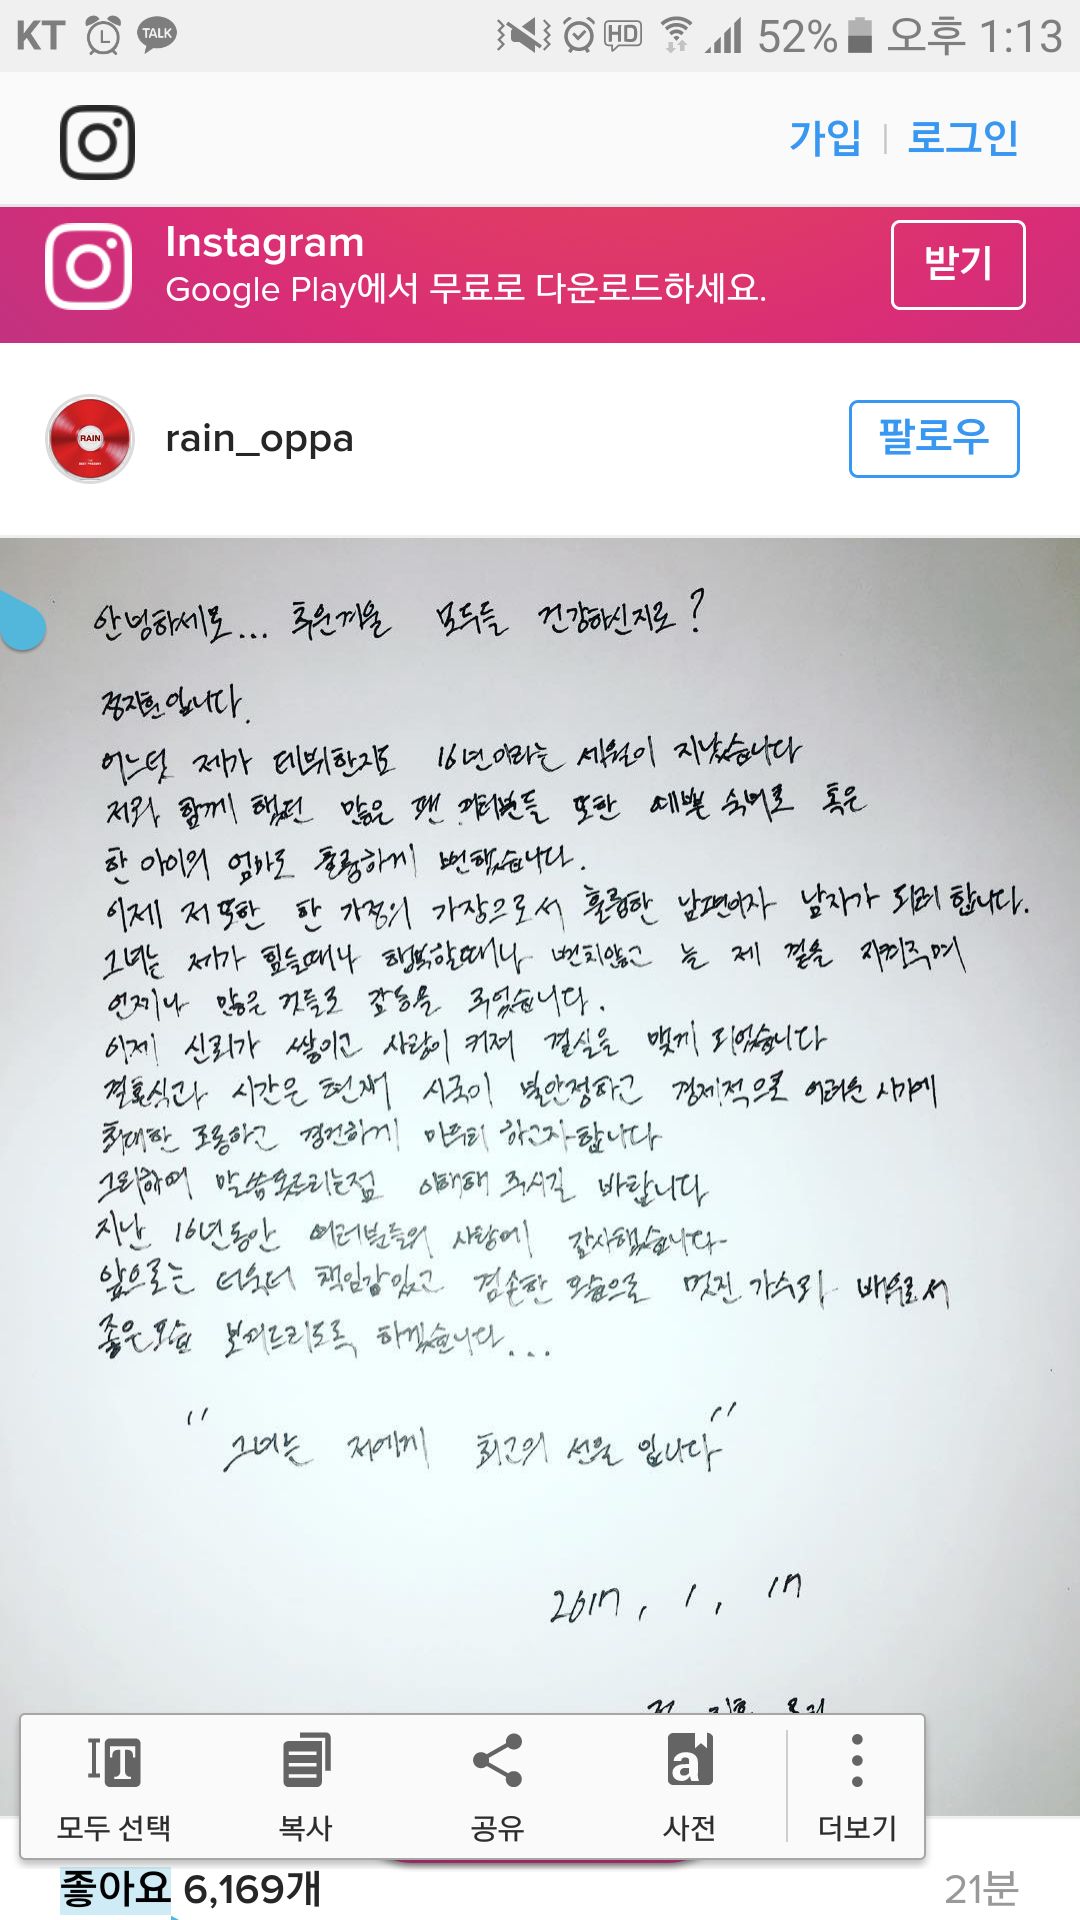 KT TALK HD 52% 오후 1:13
가입 로그인
Instagram
Google Play에서 무료로 다운로드하세요.
받기
RAIN
rain_oppa
팔로우
안녕하세요... 추운겨울 모두들 건강하신지요?
정지훈입니다.
어느덧 제가 데뷔한지도 16년이라는 세월이 지났습니다
저와 함께 했던 많은 팬 여러분들 또한 예쁜 숙녀로 혹은
한 아이의 엄마로 훌륭하게 변했습니다.
이제 저 또한 한 가정의 가장으로서 훌륭한 남편이자 남자가 되려 합니다.
그녀는 제가 힘들때나 행복할때나 변치않고 늘 제 곁을 지켜주며
언제나 많은 것들로 감동을 주었습니다.
이제 신뢰가 쌓이고 사랑이 커져 결실을 맺게 되었습니다
결혼식과 시간은 현재 시국이 불안정하고 경제적으로 어려운 시기에
최대한 조용하고 경건하게 마무리 하고자합니다
그리하여 말씀못드리는점 이해해 주시길 바랍니다
지난 16년동안 여러분들의 사랑에 감사했습니다
앞으로는 더욱더 책임감있고 겸손한 모습으로 멋진 가수와 배우로서
좋은모습 보여드리도록 하겠습니다...
"그녀는 저에게 최고의 선물 입니다"
2017, 1, 17
모두 선택 복사 공유 사전 더보기
좋아요 6,169개 21분